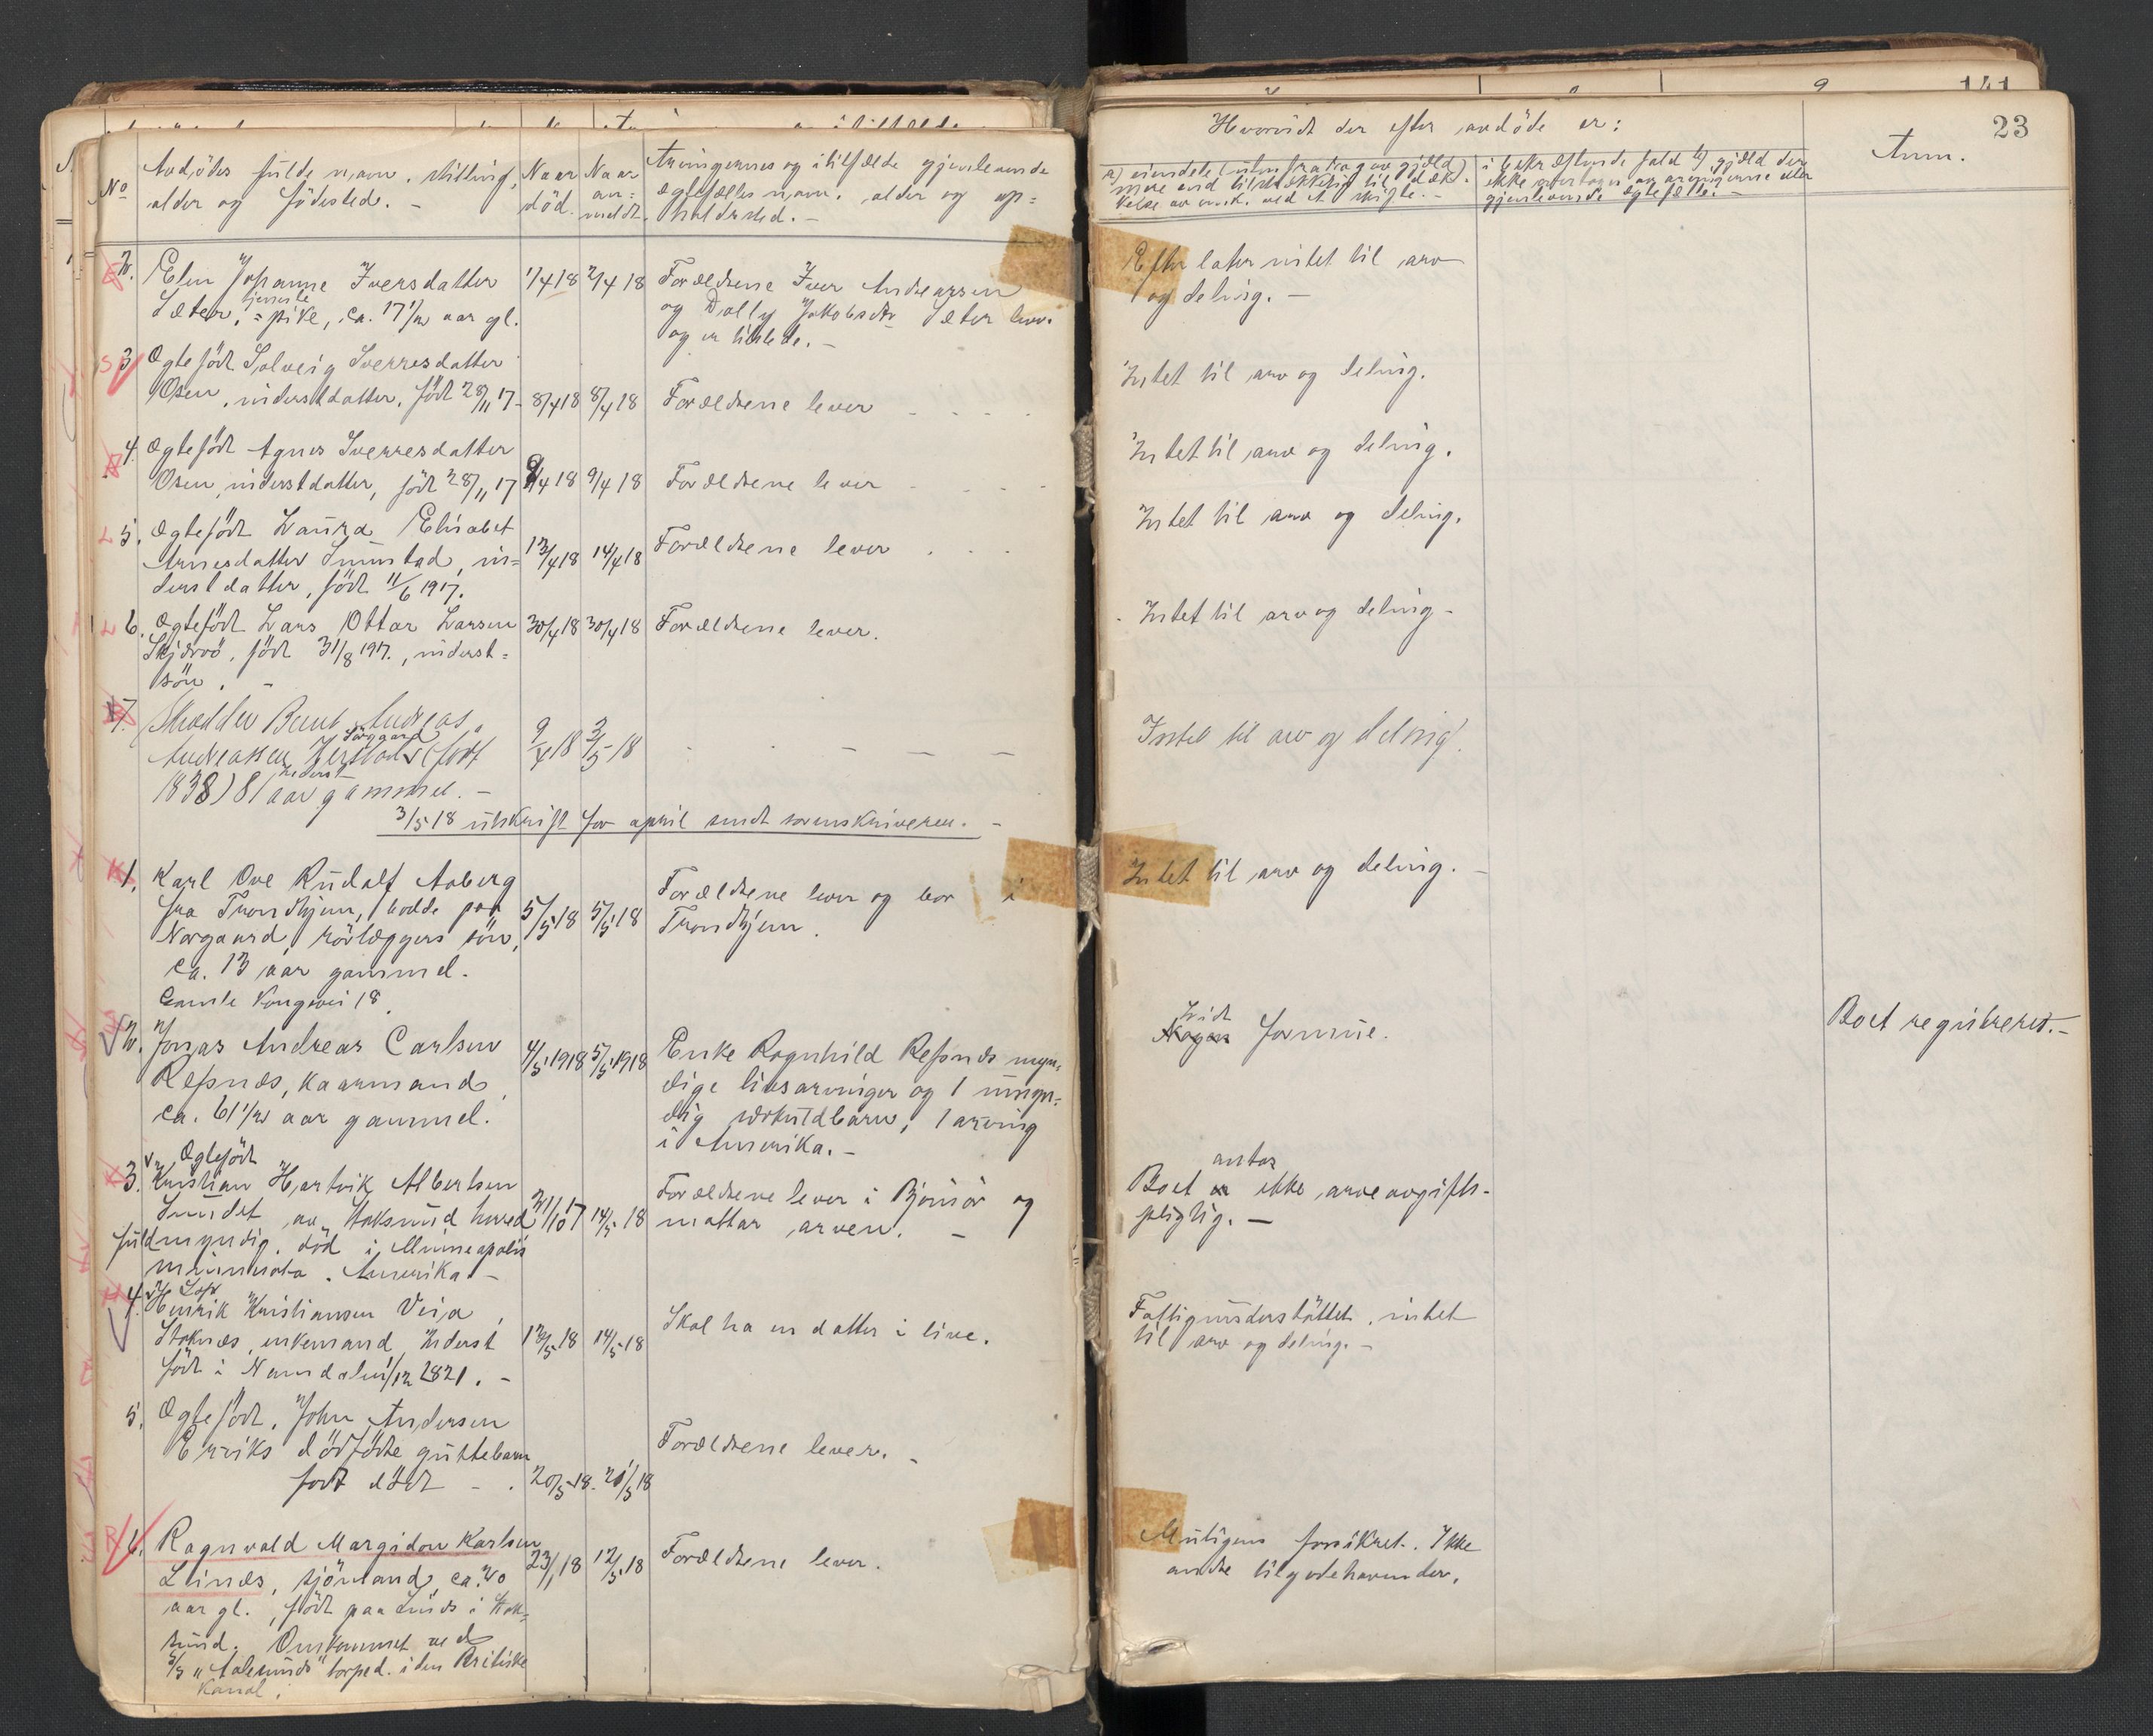 No
Avdødes fulde navn, stilling,
alder og fødested. -
Naar
død.
Naar
an=
meldt.
Arvingernes og i tilfælde gjenlevende
ægtefælles navn, alder og op=
holdssted. -
2. Elen Johanne Iversdatter
Sæter, tjeneste
= pike, ca. 17 1/2 aar gl.
1/4 18
2/4 18
Forældrene Iver Andreassen
og Dolly Jakobsdtr Sæter lever
og er tilstede. -
3 Ægtefødt Solveig Sverresdatter
Osen, inderstdatter, født 28/11 17 -
8/4 18
8/4 18
Forældrene lever
4. Ægtefødt Agnes Sverresdatter
Osen, inderstdatter, født 28/11 17
9/4 18
9/4 18
Forældrene lever
5. Ægtefødt Laura Elisabet
Arnesdatter Sumstad, in=
derstdatter, født 11/6 1917.
13/4 18
14/4 18
Forældrene lever
6. Ægtefødt Lars Ottar Larsen
Skjærvø, født 31/8 1917., inderst=
søn. -
30/4 18
30/4 18
Forældrene lever.
7. Skrædder Bernt Andreas
Sørgaard
Andreassen (født
Inderst
1838) 81 aar gammel. -
9/4 18
3/5 18
3/5 18 utskrift for april sendt sorenskriveren. -
1. Karl Ove Rudolf Aaberg
fra Trondhjem, bodde paa
Norgaard, rørlæggers søn,
ca. 13 aar gammel.
Gamle Kongevei 18.
5/5 18
5/5 18
Forældrene lever og bor i
Trondhjem.
2. Jonas Andreas Carlsen
Refsnæs, kaarmand,
ca. 61 1/2 aar gammel.
4/5 1918
5/5 1918
Enke Ragnhild Refsnæs myn=
dige livsarvinger og 1 umyn=
dig særkuldbarn, 1 arving
i Amerika. -
Ægtefødt
3. Kristian Hartvik Albertsen
Sundet av Stoksund herred
fuldmyndig, død i Minneapolis
Minnesota. Amerika -
31/10 17
14/5 18
Forældrene lever i Bjørnør og
mottar arven. -
4. Henrik Kristiansen Veia,
Stoknes, enkemand, Inderst
født i Namdalen 1/12 1821. -
13/5 18
14/5 18
Skal ha en datter i live.
5. Ægtefødt, John Andersen
Erviks dødfødte guttebarn
født dødt - .
20/5 18.
20/5 18
Forældrene lever. -
6. Ragnvald Margidon Karlsen
Linæs, sjømand, ca. 20
aar gl., født paa Linæs i Stok=
sund. Omkommet ved
S/S "Aalesunds" torped. i den Britiske
Kanal.
23/1 18
12/5 18
Forældrene lever.
141
23
Hvorvidt der efter avdøde er:
a) eiendele (uten fradrag av gjæld)
mere end tilstrækkelig til dæk=
kelse av omk. ved et skifte. -
i bekræftende fald b) gjæld der
ikke overtages av arvingerne eller
gjenlevende ægtefælle. -
Anm.
Efterlater intet til arv
og deling. -
Intet til arv og deling.
Intet til arv og deling.
Intet til arv og deling.
Intet til arv og deling -
Intet til arv og deling.
Intet til arv og deling. -
Lidt
Nogen formue.
Boet registreret. -
antas
Boet er ikke arveavgifts-
pligtig. -
Fattigunderstøttet, intet
til arv og deling. -
Muligens forsikret. Ikke
andre tilgodehavender.